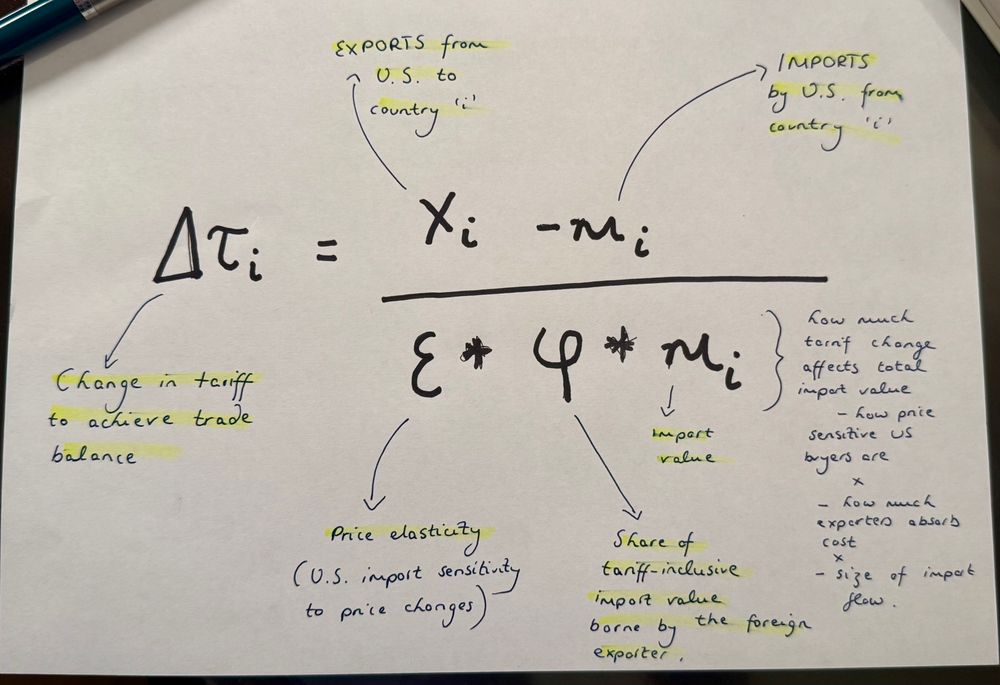 EXPORTS from
U.S. to
country 'i'
IMPORTS
by U.S. from
country 'i'
Δτi = Xi - mi
ε * φ * mi
Change in tariff
to achieve trade
balance
import
value
how much
tariff change
affects total
import value
- how price
sensitive US
buyers are
x
- how much
exporters absorb
cost
x
- size of import
flow.
Price elasticity
(U.S. import sensitivity
to price changes)
Share of
tariff-inclusive
import value
borne by the foreign
exporter.